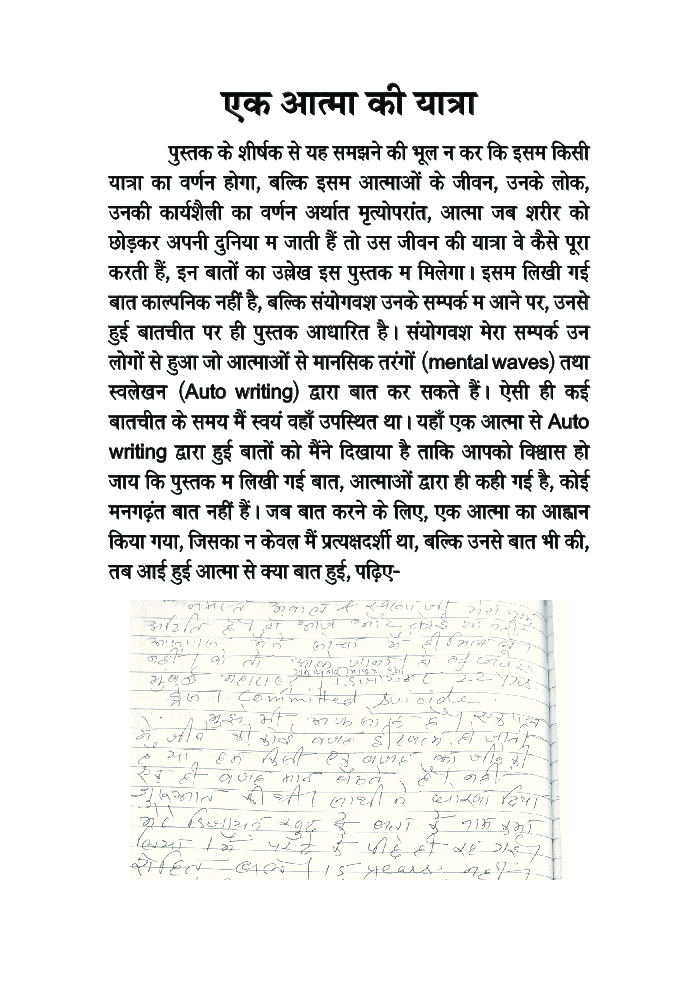 एक आत्मा की यात्रा
पुस्तक के शीर्षक से यह समझने की भूल न कर कि इसम किसी
यात्रा का वर्णन होगा, बल्कि इसम आत्माओं के जीवन, उनके लोक,
उनकी कार्यशैली का वर्णन अर्थात मृत्योपरांत, आत्मा जब शरीर को
छोड़कर अपनी दुनिया म जाती हैं तो उस जीवन की यात्रा वे कैसे पूरा
करती हैं, इन बातों का उल्लेख इस पुस्तक म मिलेगा। इसम लिखी गई
बात काल्पनिक नहीं है, बल्कि संयोगवश उनके सम्पर्क म आने पर, उनसे
हुई बातचीत पर ही पुस्तक आधारित है। संयोगवश मेरा सम्पर्क उन
लोगों से हुआ जो आत्माओं से मानसिक तरंगों (mental waves) तथा
स्वलेखन (Auto writing) द्वारा बात कर सकते हैं। ऐसी ही कई
बातचीत के समय मैं स्वयं वहाँ उपस्थित था। यहाँ एक आत्मा से Auto
writing द्वारा हुई बातों को मैंने दिखाया है ताकि आपको विश्वास हो
जाय कि पुस्तक म लिखी गई बात, आत्माओं द्वारा ही कही गई है, कोई
मनगढ़ंत बात नहीं हैं। जब बात करने के लिए, एक आत्मा का आह्वान
किया गया, जिसका न केवल मैं प्रत्यक्षदर्शी था, बल्कि उनसे बात भी की,
तब आई हुई आत्मा से क्या बात हुई, पढ़िए-
नमस्ते
नहीं। वो तो
2-2-
Committed suicide
है या हम किसी
ही वजह मान बैठते हैं। नहीं
शुरुआत की थी। साथी ने धोखा दिया
मेरे डिजायन खुद के
लिया। मैं परदे के पीछे ही रह गई।
रोहित 15 years. नहीं